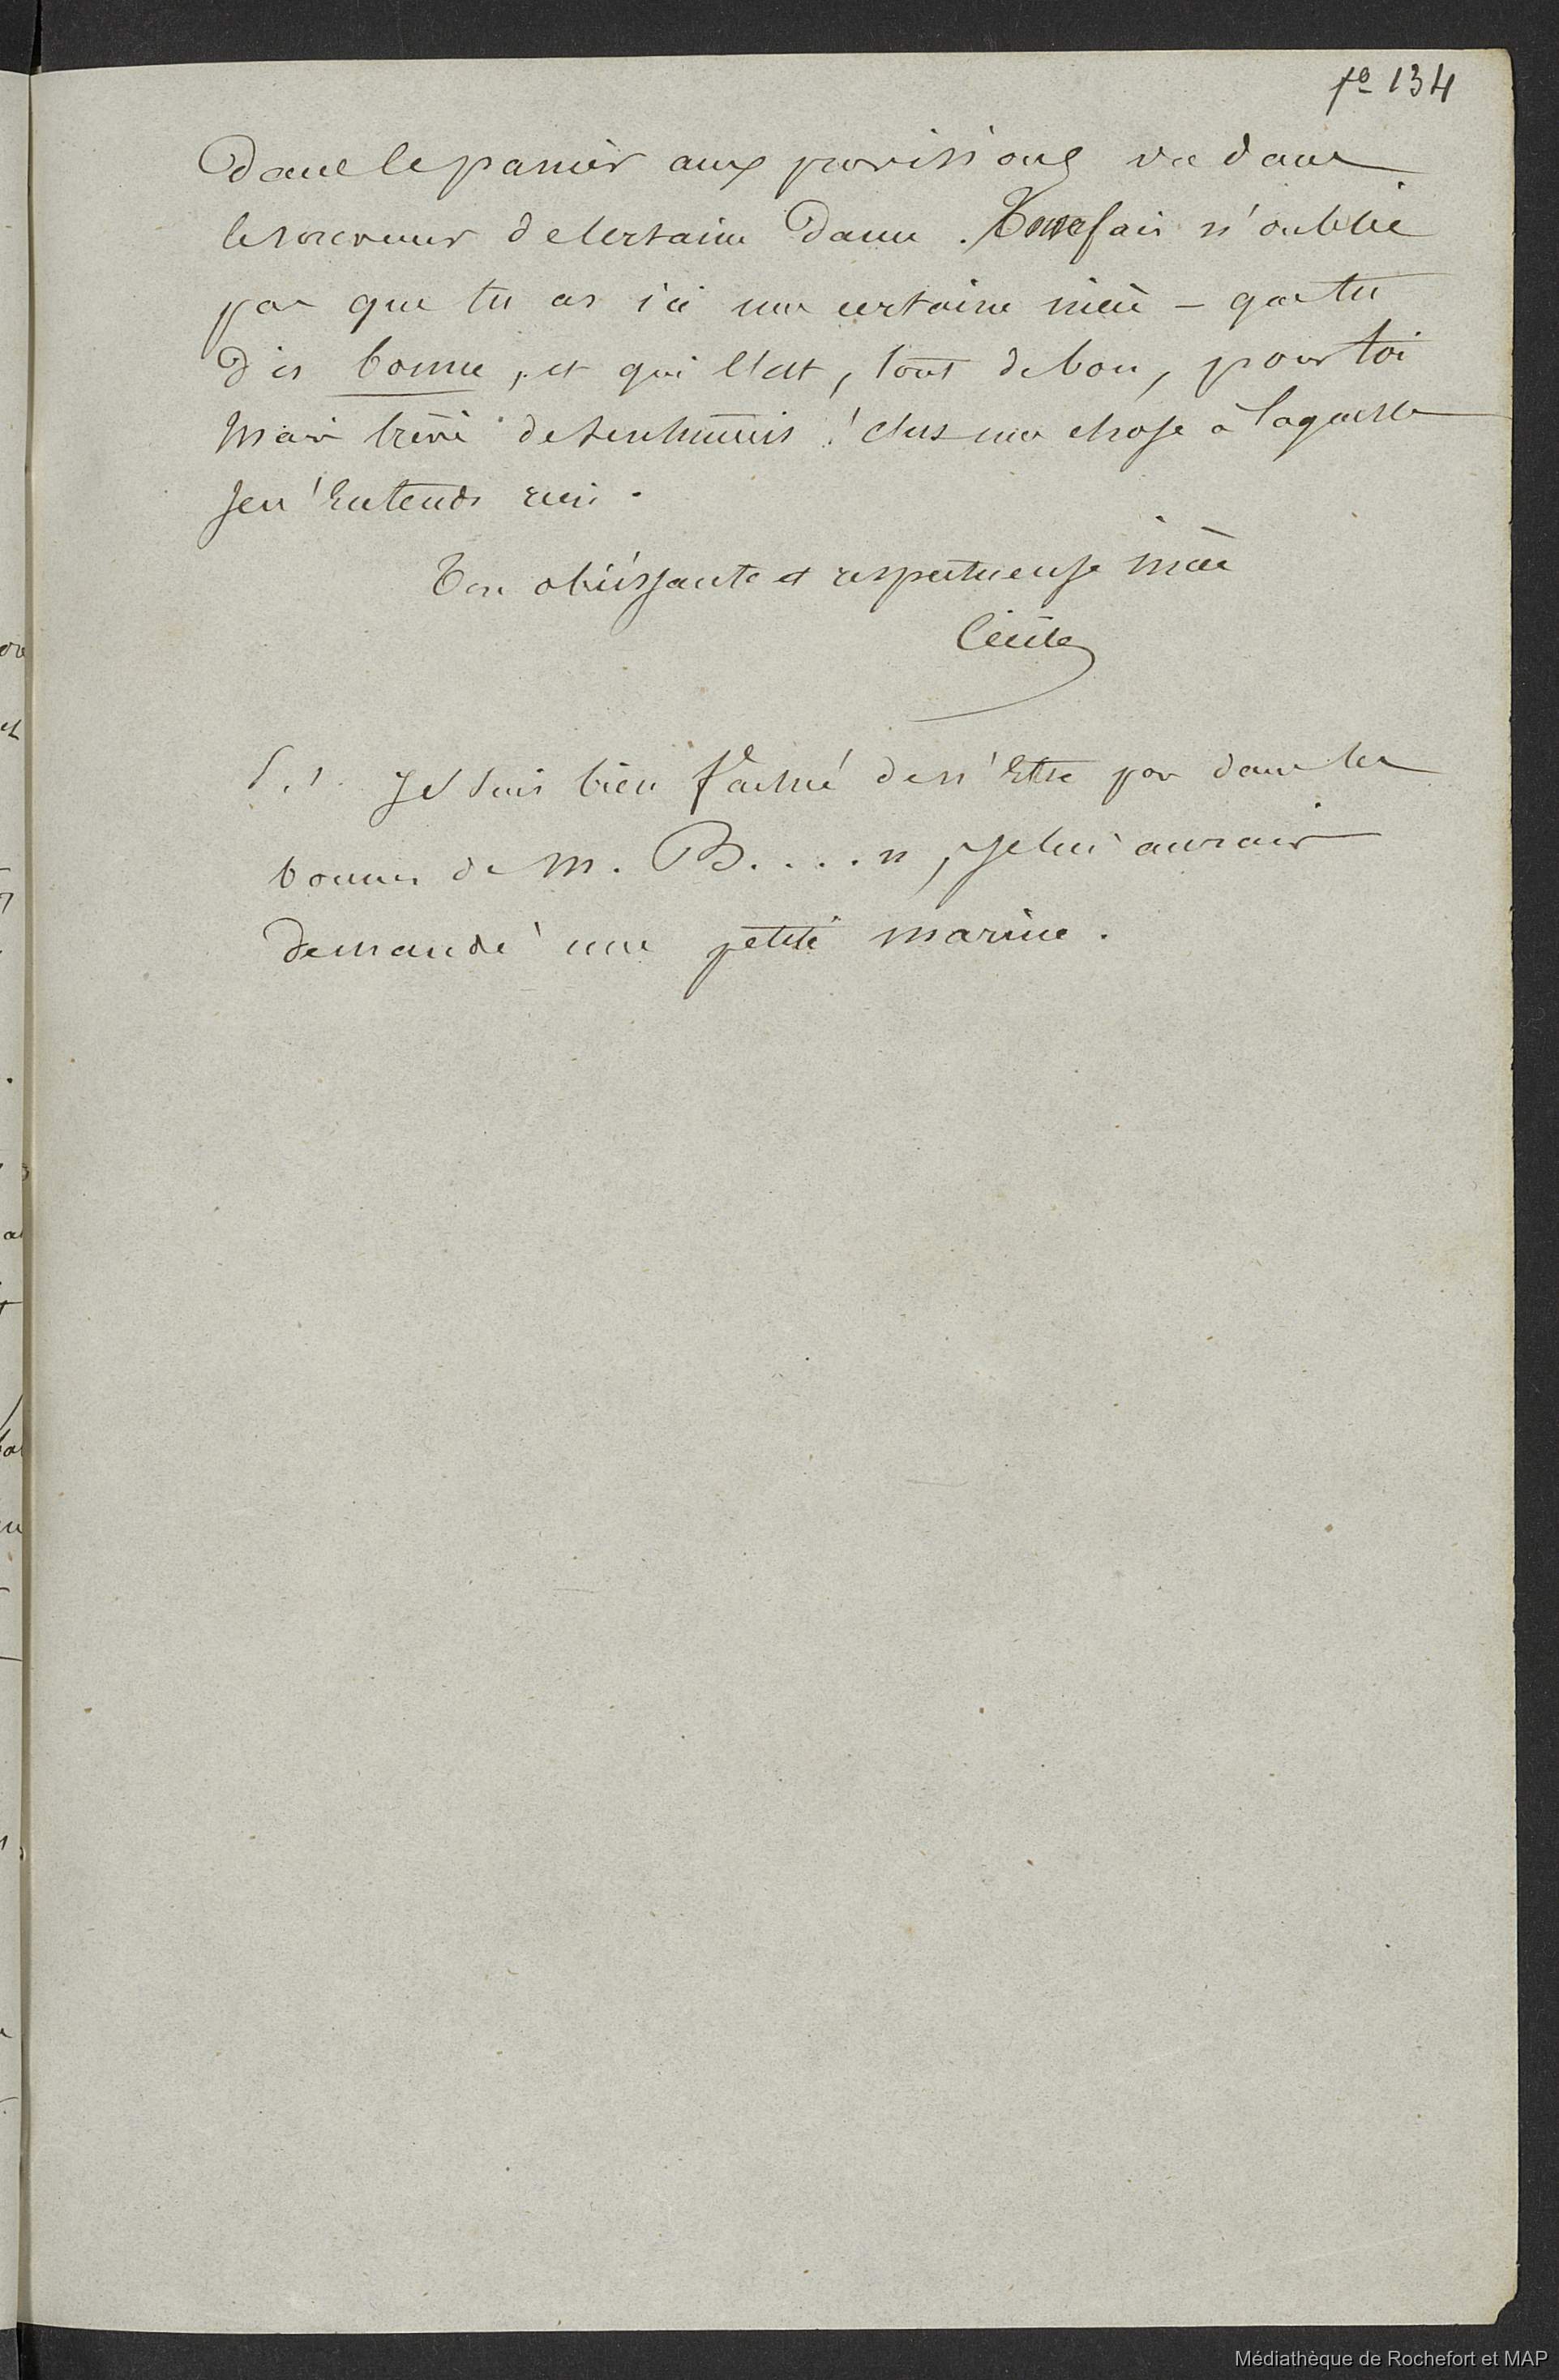 fo 134
dans le panier aux provisions va dans
le souvenir de certaine dame. Toutefois n'oublie
pas que tu as ici une certaine nièce – que tu
dis bonne, et qui l'est, tout de bon, pour toi
Mais trève de sentiments ! c'est une chose à laquelle
je n'entends rien.
Ton obéissante et respectueuse nièce
Cécile
P.S. Je suis bien fachée de n'être pas dans les
bonnes de M. B....n, je lui aurais
demandé une petite marine.
Médiathèque de Rochefort et MAP